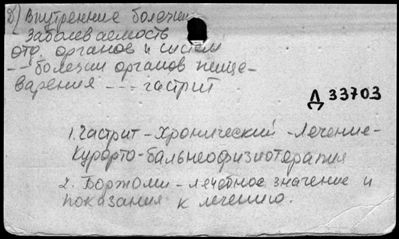 2) Внутренние болезни
Заболеваемость
отд. органов и систем
-- болезни органов пище-
варения --- гастрит
Д 33703
1. Гастрит - Хронический - Лечение -
Курорто-бальнеофизиотерапия
2. Боржоми - лечебное значение и
показания к лечению.